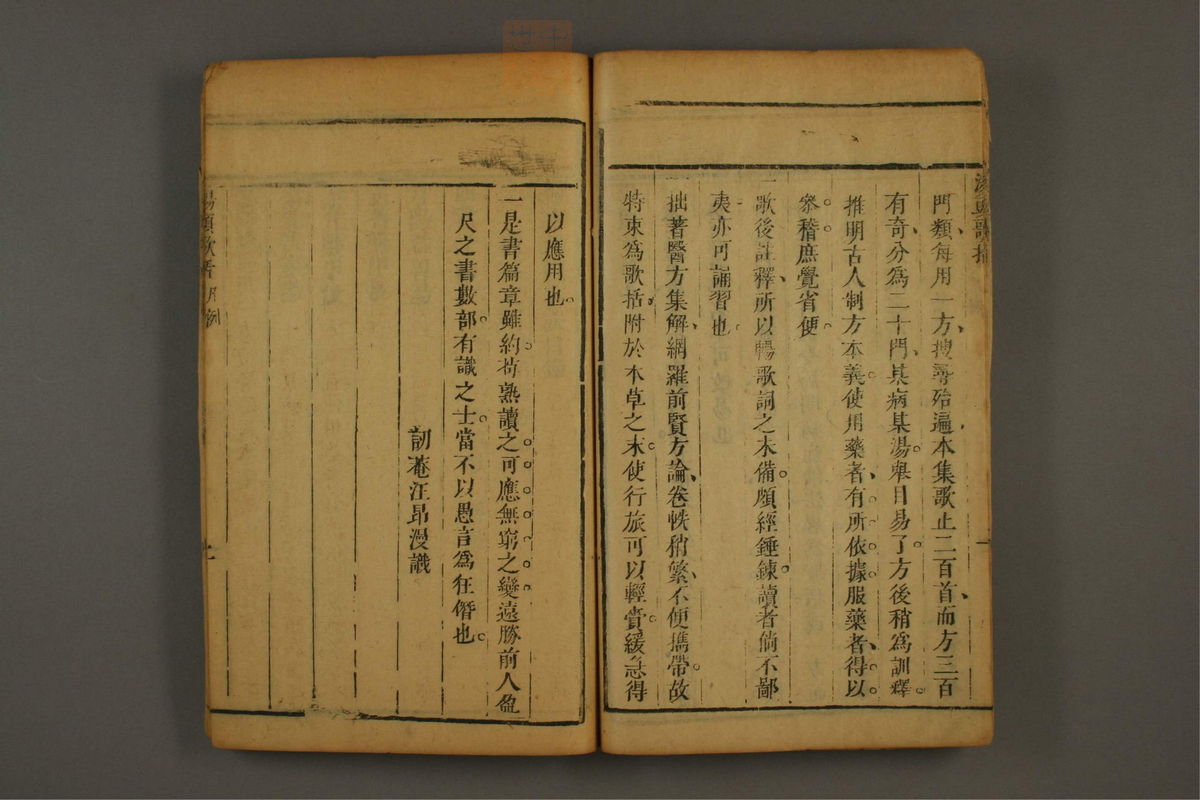 門類每用一方搜尋殆遍本集歌止二百首而方三百
有奇分爲二十門某病某湯舉目易了方後稍爲訓釋
推明古人制方本義使用藥者有所依據服藥者得以
叅稽庶覺省便
一歌後註釋所以暢歌詞之未備頗經錘鍊讀者倘不鄙
夷亦可誦習也
一拙著醫方集解網羅前賢方論卷帙稍繁不便攜帶故
特束爲歌括附於本草之末使行旅可以輕賷緩急得
以應用也
一是書篇章雖約苟熟讀之可應無窮之變遠勝前人盈
尺之書數部有識之士當不以愚言爲狂僭也
訒菴汪昂漫識
湯頭歌括凡例